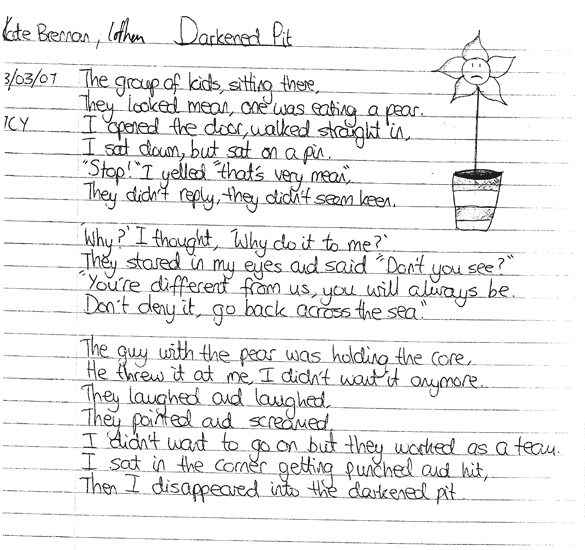 Kate Brennan, Lothen Darkened Pit
3/03/07 The group of kids, sitting there,
They looked mean, one was eating a pear.
7CY I opened the door, walked straight in,
I sat down, but sat on a pin.
"Stop!" I yelled "that's very mean",
They didn't reply, they didn't seem keen.
'Why?' I thought, 'Why do it to me?'
They stared in my eyes and said "Don't you see?"
"You're different from us, you will always be.
Don't deny it, go back across the sea."
The guy with the pear was holding the core,
He threw it at me, I didn't want it anymore.
They laughed and laughed,
They pointed and screamed,
I didn't want to go on but they worked as a team.
I sat in the corner getting punched and hit,
Then I disappeared into the darkened pit.